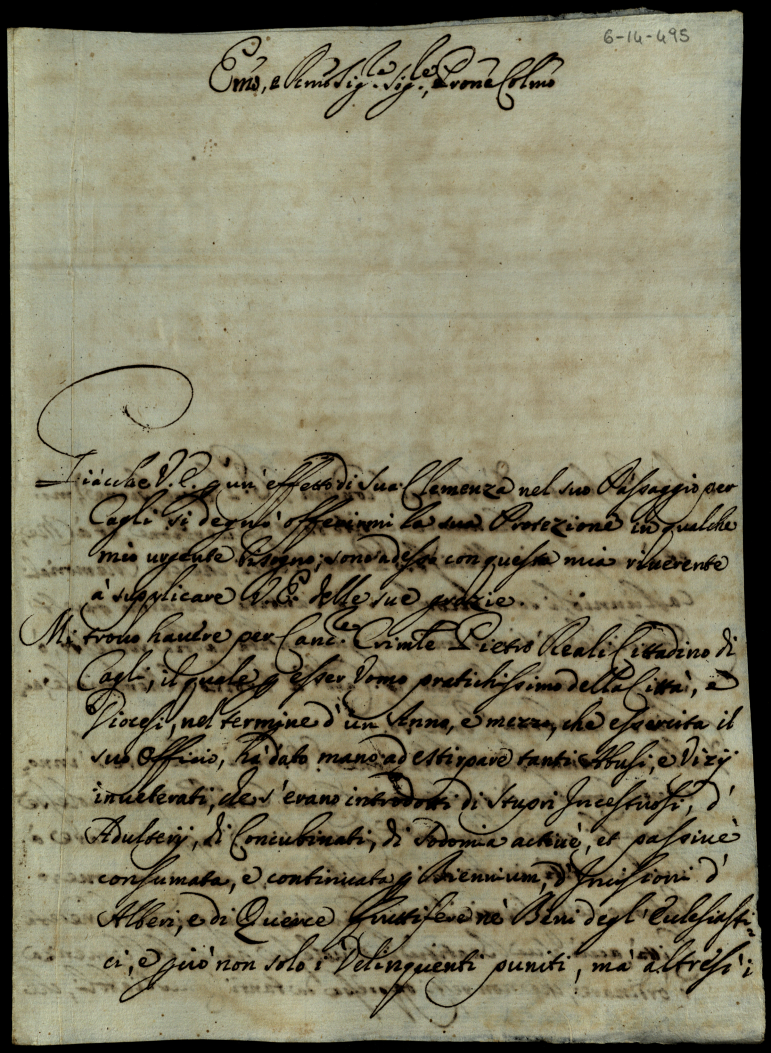 6-14-495
Emo, e Rmo Sig.re Sig.re, Prone Colmo
Giacche V.E. p un' effetto di sua Clemenza nel suo Passaggio per
Cagli si degnò offerirmi la sua Protezione in qualche
mio urgente bisogno; sono adesso con questa mia riverente
à supplicare V.E. delle sue grazie.
Mi trovo havere per Canc.re Crimle Pietro Reali Cittadino di
Cagli, il quale p esser Uomo pratichissimo della Città, e
Diocesi, nel termine d' un Anno, e mezzo, che essercita il
suo Officio, hà dato mano ad estirpare tanti Abusi, e Vizij
inveterati, che s' erano introdotti di Stupri Incestuosi, d'
Adulterij, di Concubinati, di Sodomia activè, et passivè
consumata, e continuata p Biennium, d' Incissioni d'
Alberi, e di Querce fruttifere nè Beni degl' Eclesiasti=
ci, e più non solo i Delinquenti puniti, mà altresì i